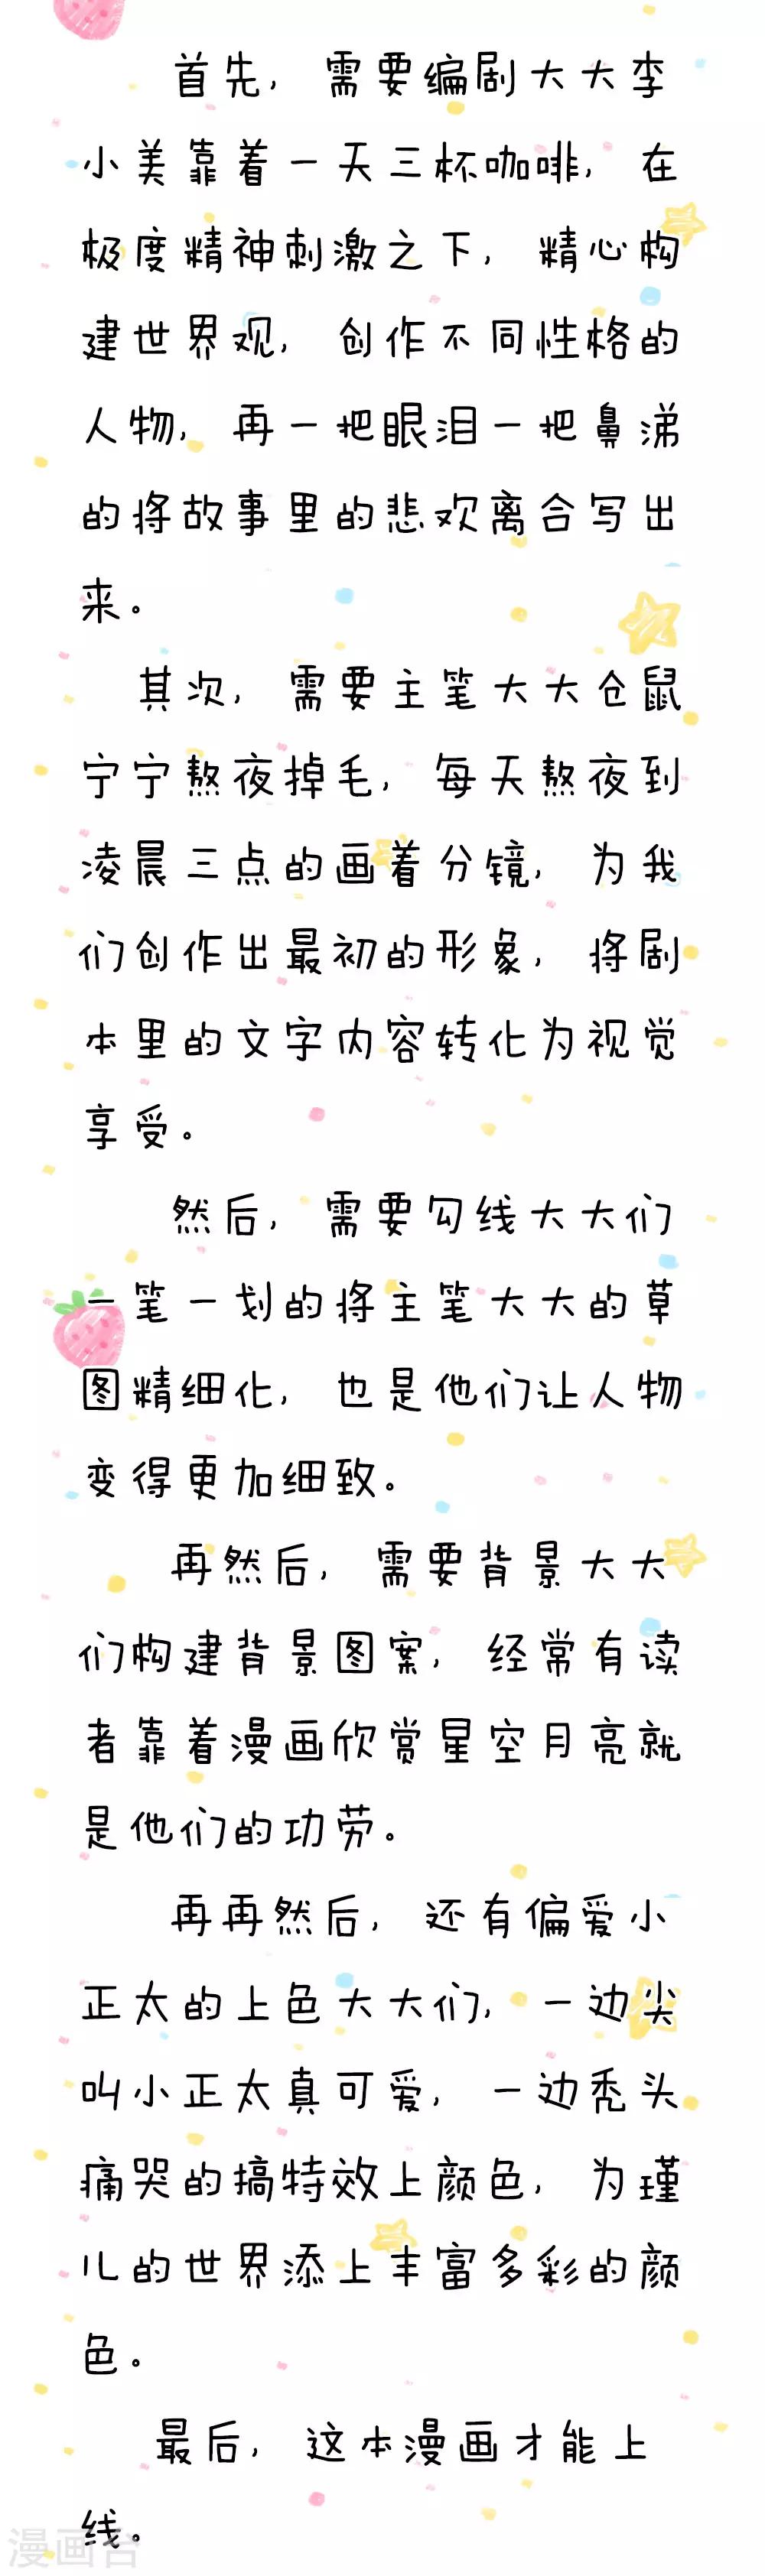 首先，需要编剧大大李
小美靠着一天三杯咖啡，在
极度精神刺激之下，精心构
建世界观，创作不同性格的
人物，再一把眼泪一把鼻涕
的将故事里的悲欢离合写出
来。
其次，需要主笔大大仓鼠
宁宁熬夜掉毛，每天熬夜到
凌晨三点的画着分镜，为我
们创作出最初的形象，将剧
本里的文字内容转化为视觉
享受。
然后，需要勾线大大们
一笔一划的将主笔大大的草
图精细化，也是他们让人物
变得更加细致。
再然后，需要背景大大
们构建背景图案，经常有读
者靠着漫画欣赏星空月亮就
是他们的功劳。
再再然后，还有偏爱小
正太的上色大大们，一边尖
叫小正太真可爱，一边秃头
痛哭的搞特效上颜色，为瑾
儿的世界添上丰富多彩的颜
色。
最后，这本漫画才能上
线。
漫画台